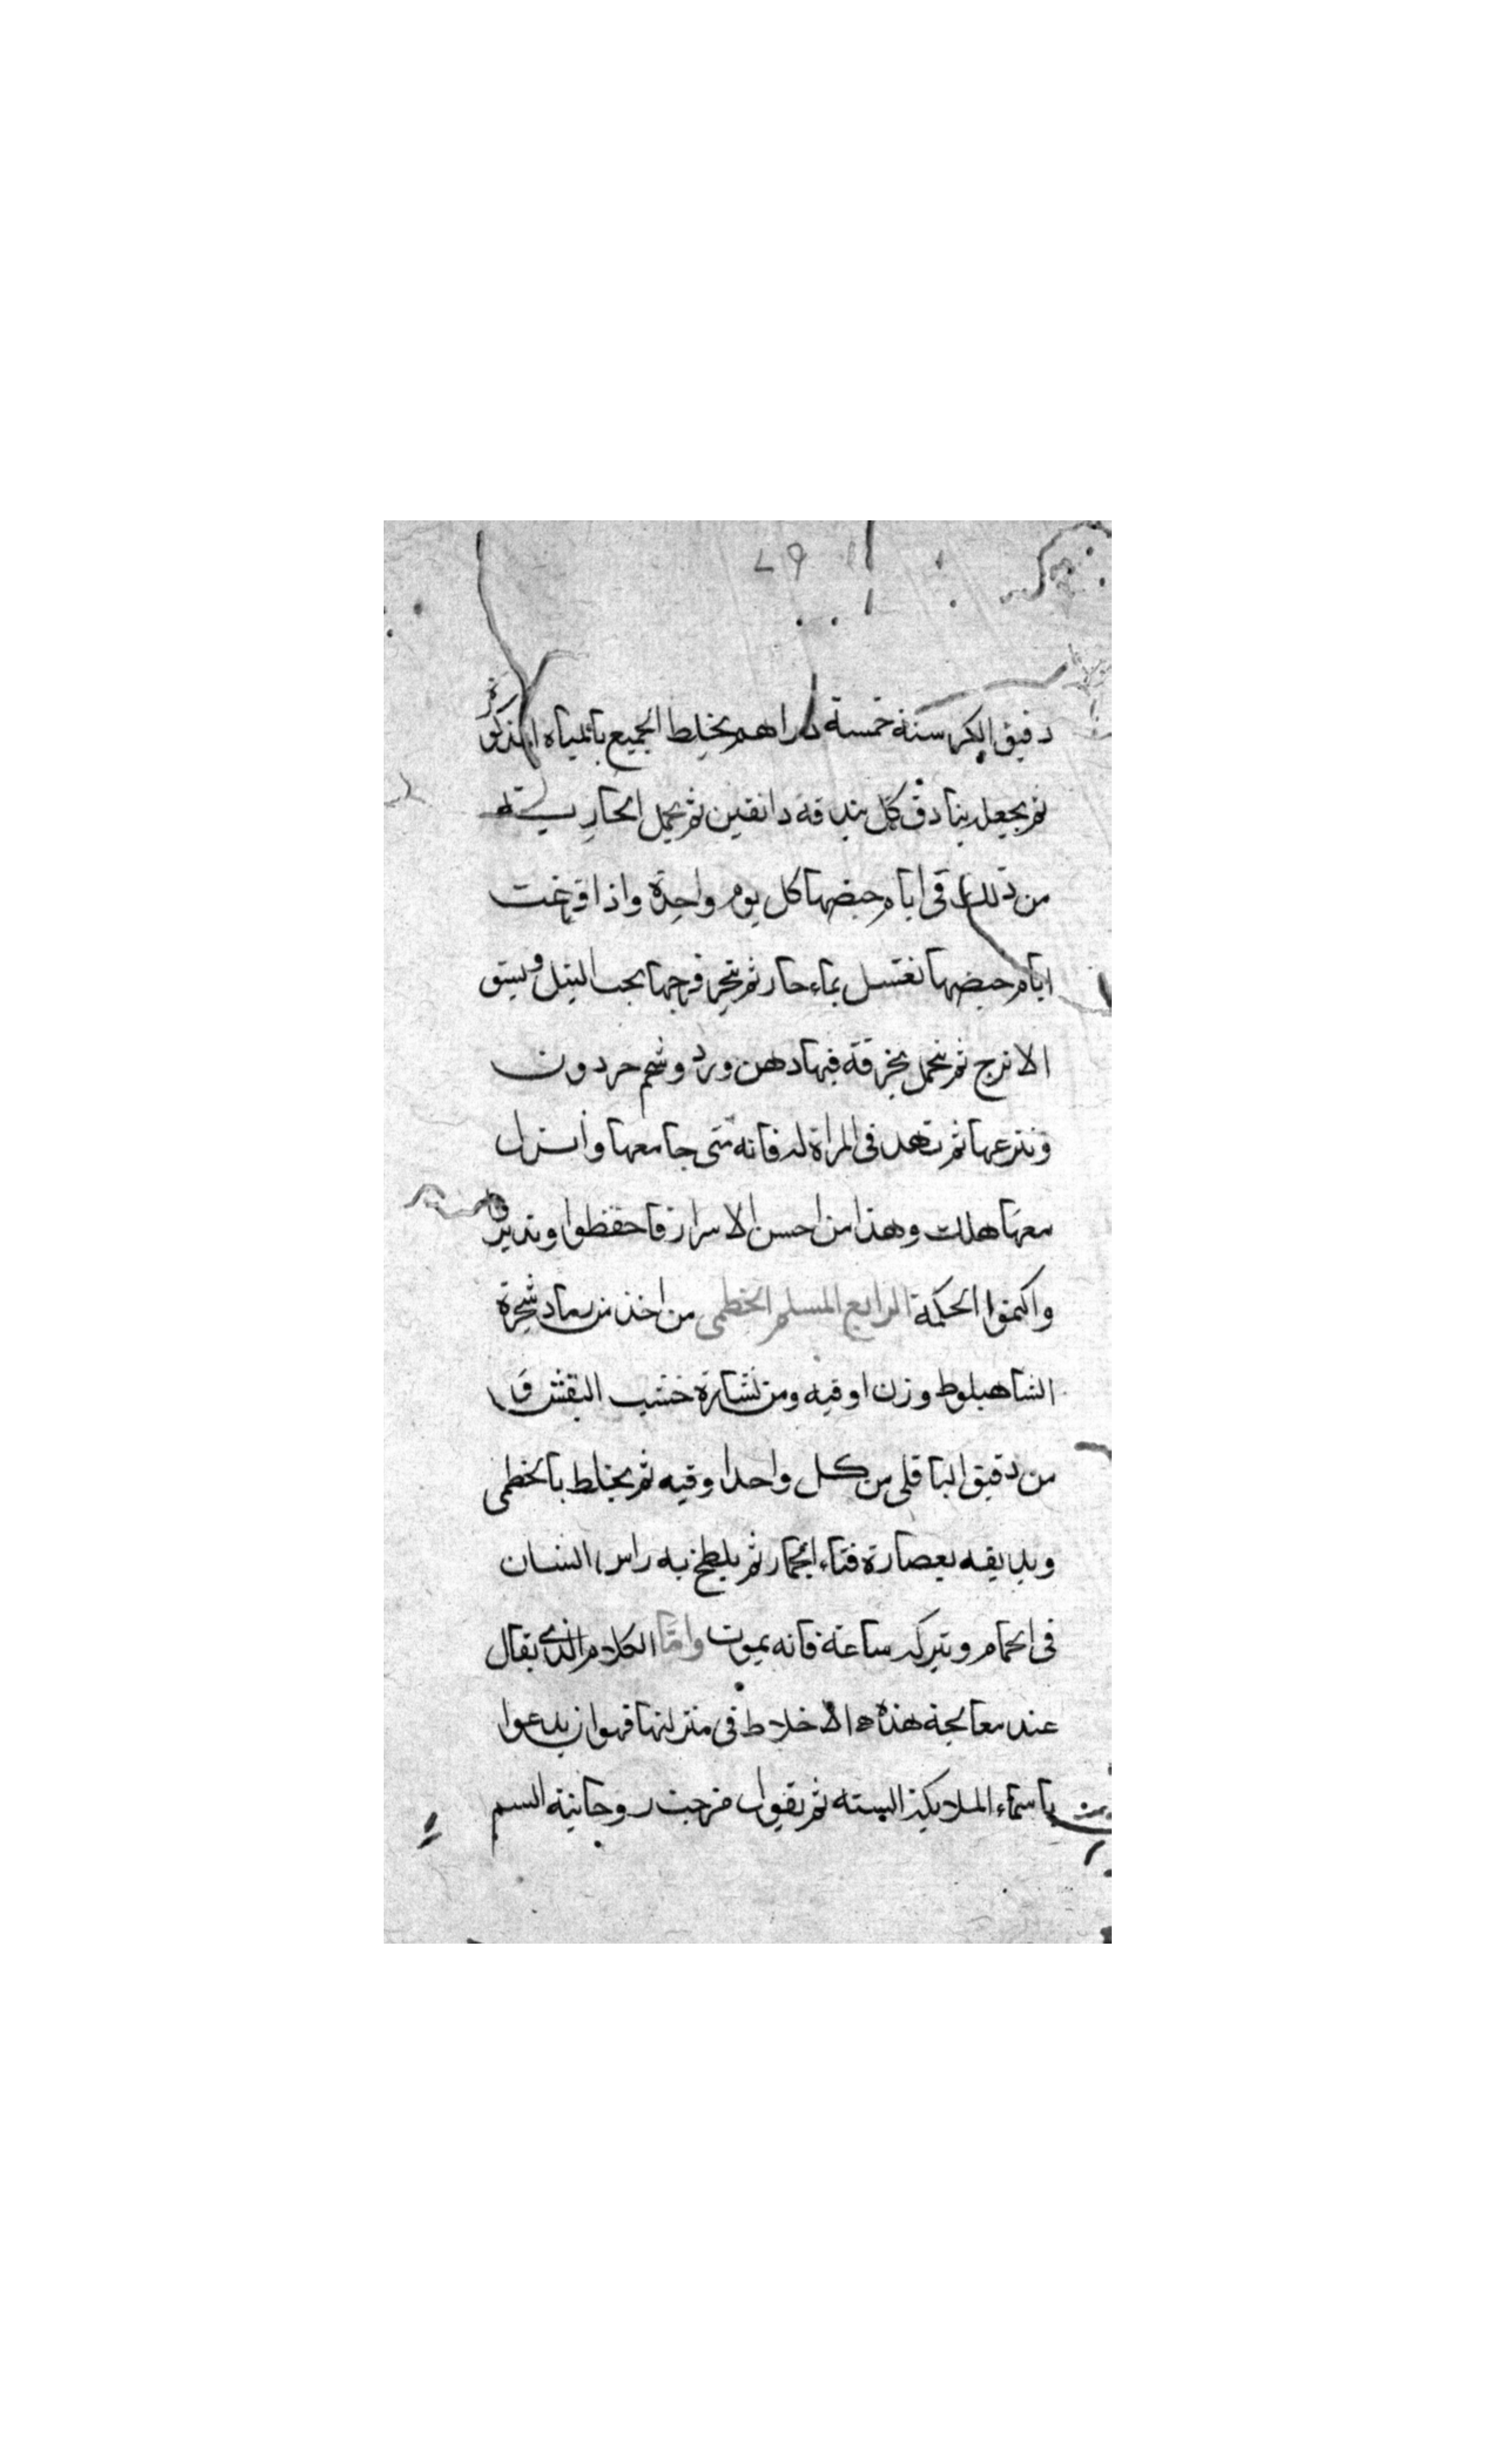 ٦٩
دقيق الكرسنة خمسة دراهم يخلط الجميع بالمياه المذكورة
ثم يجعل بنادق كل بندقة دانقين ثم تحمل الجارية
من ذلك فى ايام حيضها كل يوم واحدة واذا فرغت
ايام حيضها تغتسل بماء حار ثم تبخر فرجها بحب النيل
الاترج ثم تحمل بخرقة فيها دهن ورد وشحم حردون
وتنزعها ثم تهدى المراة له فانه متى جامعها وانزل
معها هلك وهذا من احسن الاسرار فاحفظوا وتدبروا
واكتموا الحكمة الرابع المسلم الخطمى من اخذ من رماد شجرة
الشاهبلوط وزن اوقيه ومن نشارة خشب البقش و
من دقيق الباقلى من كل واحد اوقيه ثم يخلط بالخطمى
ويديفه بعصارة قثاء الحمار ثم يلطخ به راس انسان
فى الحمام ويتركه ساعة فانه يموت واما الكلام الذى يقال
عند معالجة هذه الاخلاط فى منزلتها فهوا ن يدعوا
باسماء الملايكة الستة ثم يقول مزجت روحانية السم